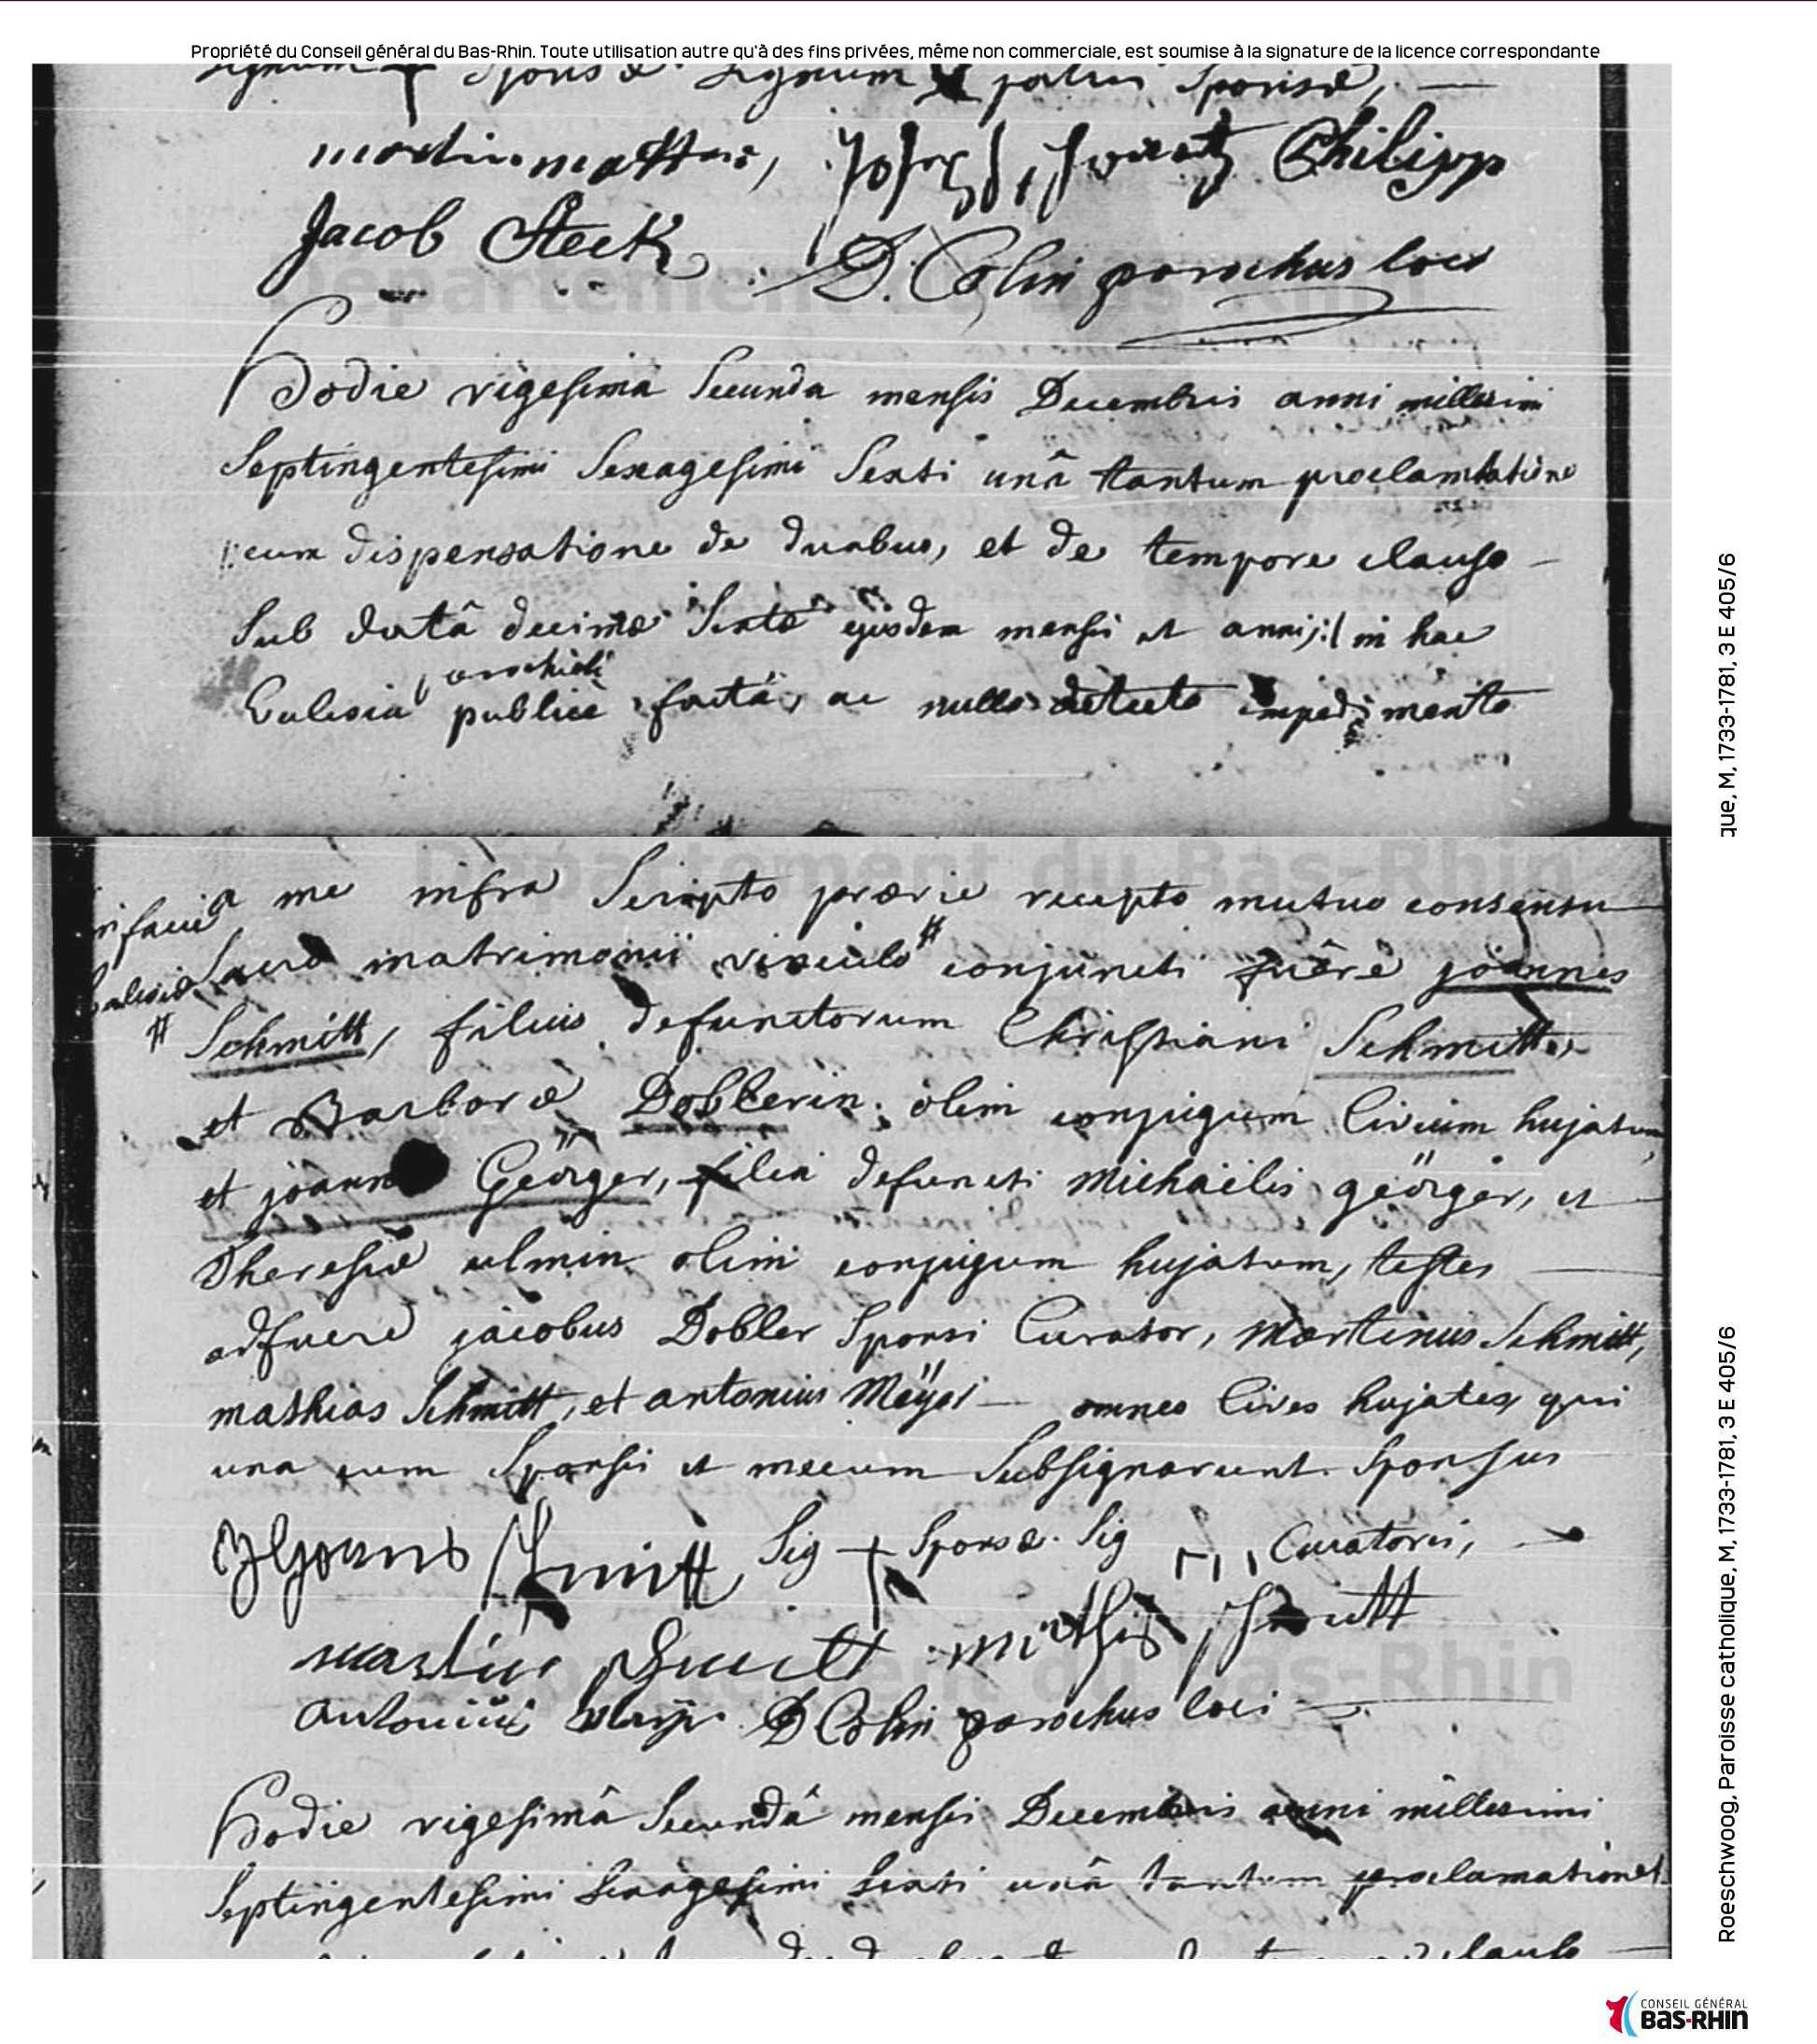 Propriété du Conseil général du Bas-Rhin. Toute utilisation autre qu'à des fins privées, même non commerciale, est soumise à la signature de la licence correspondante
Signum Sponsæ. Signum patris Sponsæ,
martin mattern, Joseph Philipp
Jacob Steck D. Colin parochus loci
Hodie vigesima Secunda mensis Decembris anni millesimi
Septingentesimi Sexagesimi Sexti unâ tantum proclamatione
|:cum dispensatione de duabus, et de tempore clauso
Sub datâ decimæ Sextæ ejusdem mensis et anni:| in hac
Ecclesia parochiali publicè factâ, ac nullo detecto impedimento
a me infra Scripto parocho recepto mutuo consensu
in facie
Ecclesiæ
#
Sacro matrimonii vinculo # conjuncti fuêre joannes
Schmitt, filius defunctorum Christiani Schmitt,
et Barbaræ Doblerin, olim conjugum Civium hujatum
et joanna Geörger, filia defuncti Michaëlis geörger, et
Theresiæ ulmin olim conjugum hujatum, testes
adfuere jacobus Dobler Sponsi Curator, Martinus Schmitt,
mathias Schmitt, et antonius Meÿer omnes Cives hujates, qui
una cum Sponsis et mecum Subsignarunt. Sponsus
Schmitt, Sig + Sponsæ. Sig Curatoris,
martin Schmitt mathis Schmitt
antonius D Colin parochus loci
Hodie vigesimâ Secundâ mensis Decembris anni millesimi
Septingentesimi Sexagesimi Sexti unâ tantum proclamatione
que, M, 1733-1781, 3 E 405/6
Roeschwoog, Paroisse catholique, M, 1733-1781, 3 E 405/6
Département du Bas-Rhin
CONSEIL GÉNÉRAL
BAS-RHIN